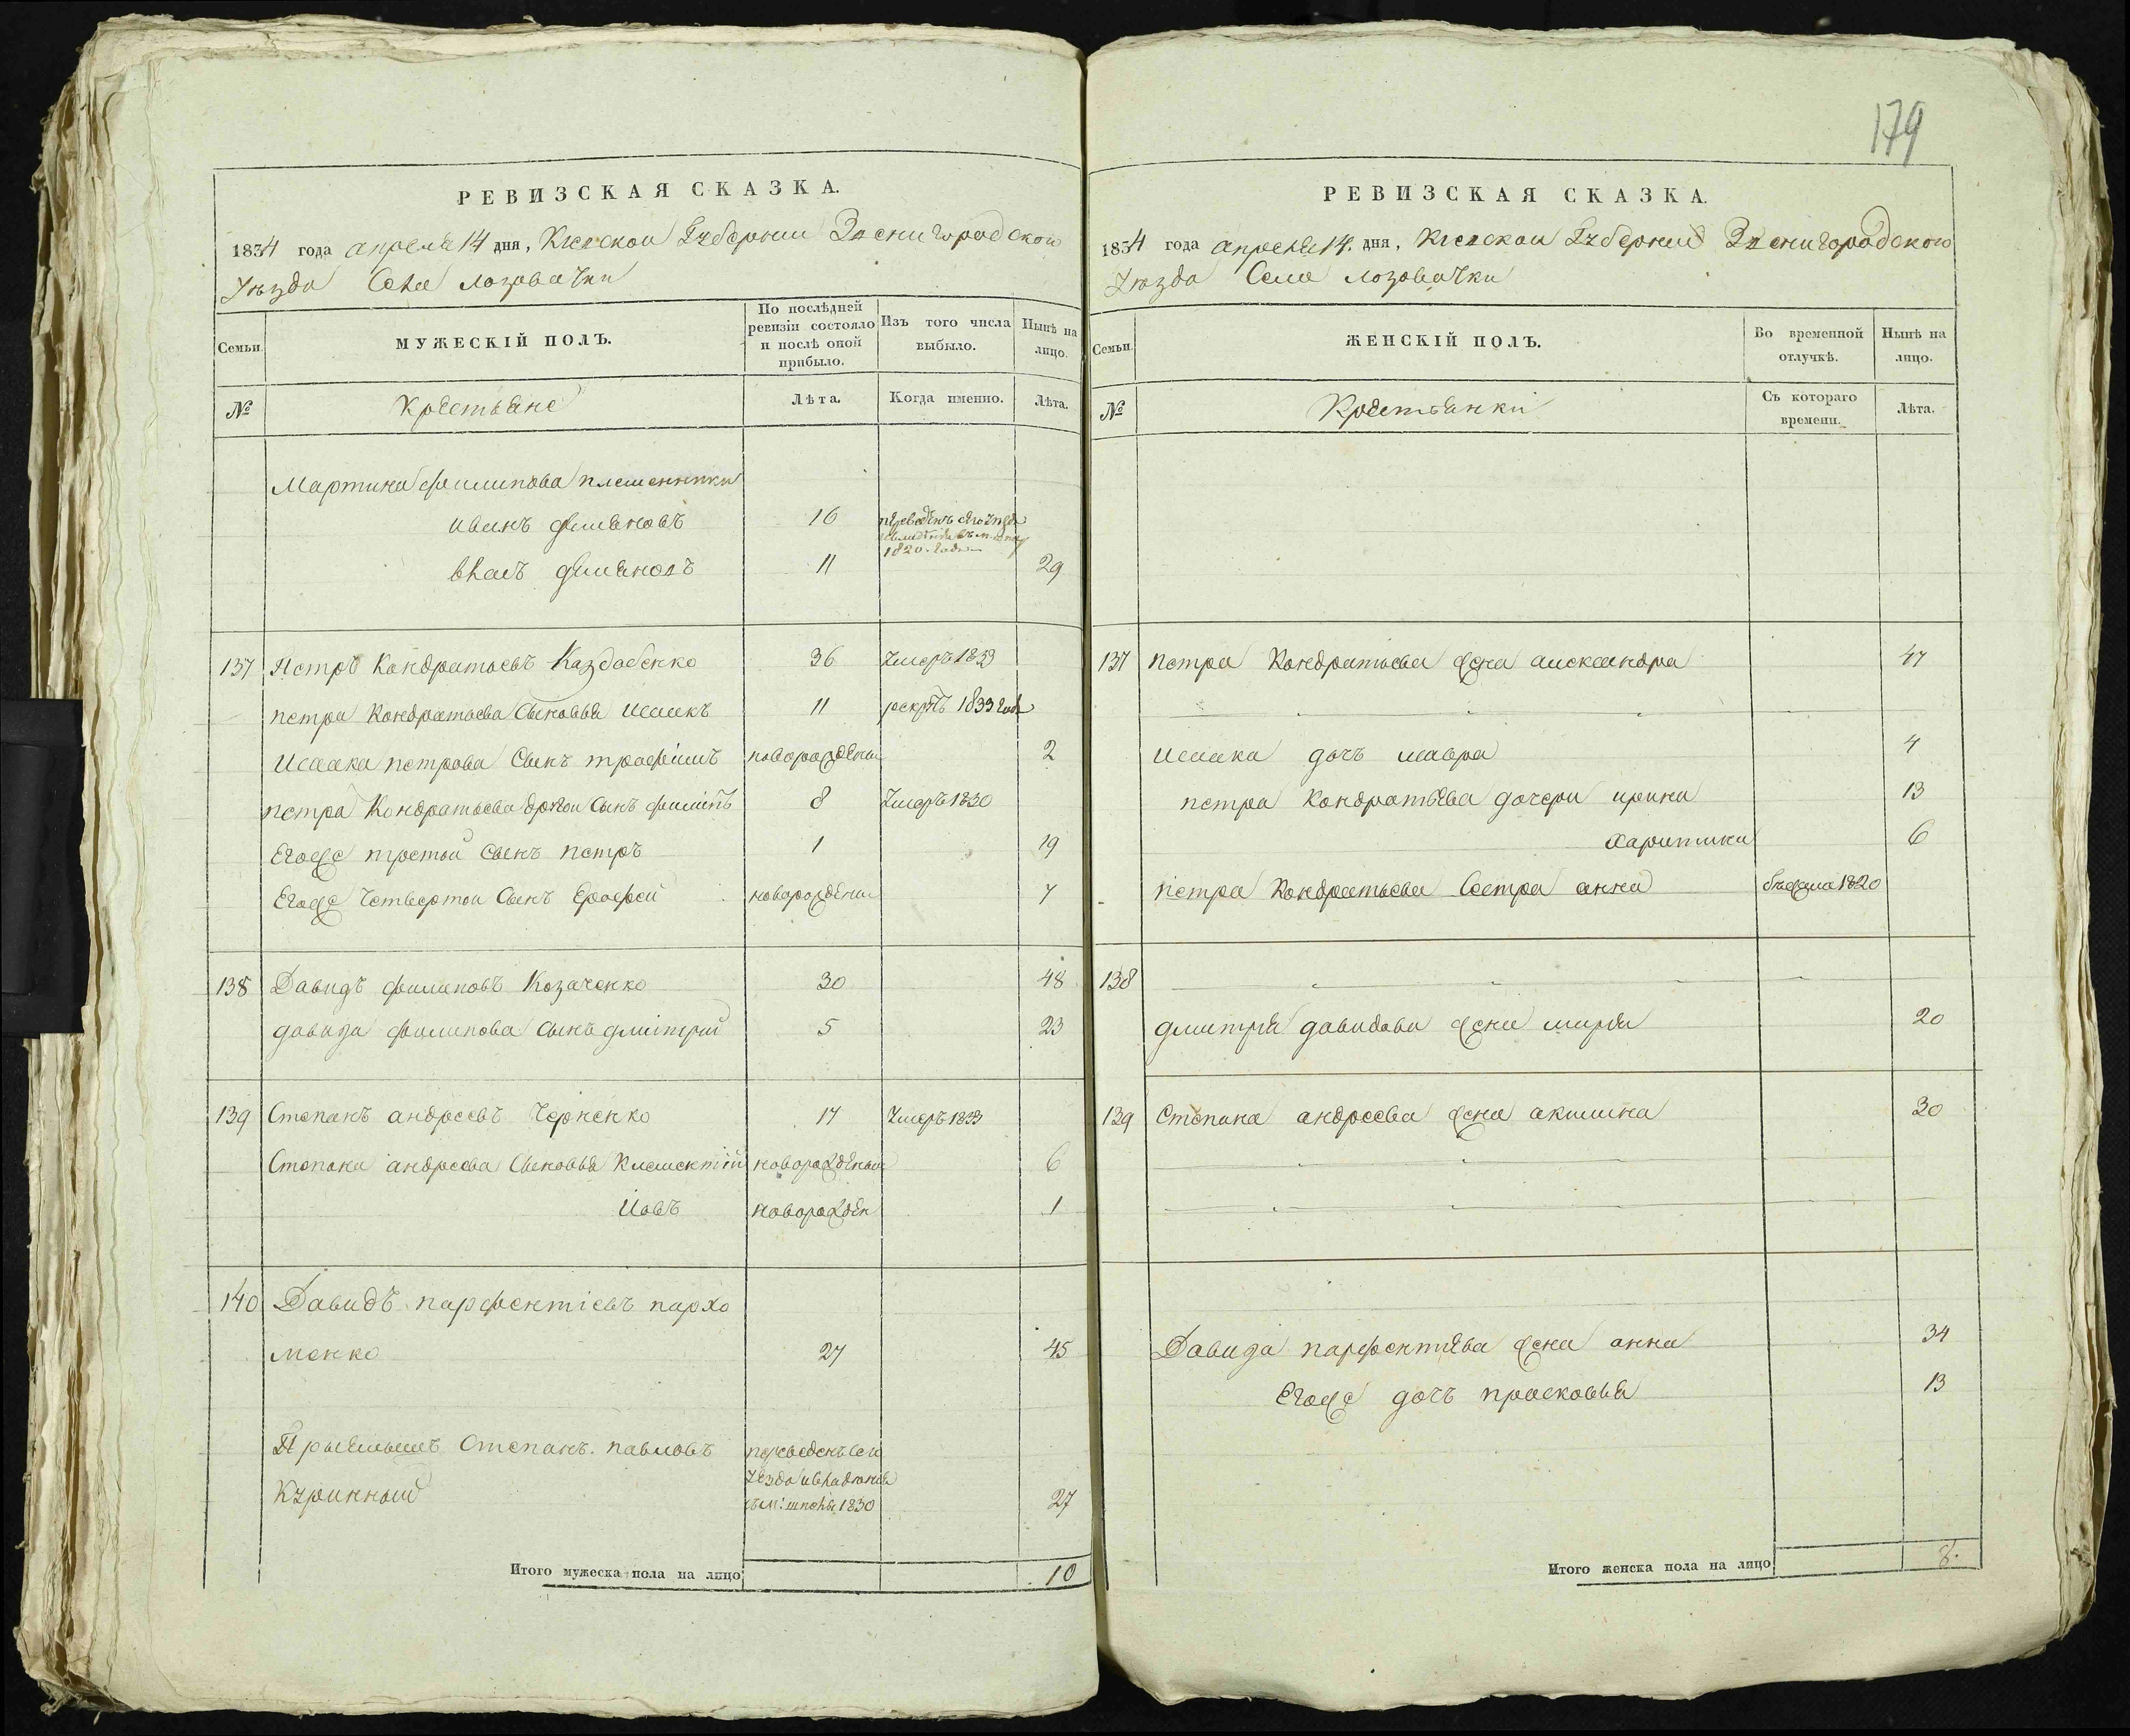 179
РЕВИЗСКАЯ СКАЗКА.
1834 года апреля 14 дня, Киевской Губернии Звенигородского
Уезда Села Лозоватки
Семьи.
МУЖЕСКІЙ ПОЛЪ.
По послѣдней ревизіи состояло и послѣ оной прибыло.
Изъ того числа выбыло.
Нынѣ на лицо.
№
Крестьяне
Лѣта.
Когда именно.
Лѣта.
Мартина филипова племенники
иванъ 16 1820 года
власъ 11 29
137 Петръ Кондратьевъ 36 Умеръ 1833
петра Кондратьева Сыновья Исаакъ 11 рекрутъ 1833 года
Исаака петрова Сынъ трафимъ новорожденъ 2
петра Кондратьева другой Сынъ филипъ 8 Умеръ 1830
Егоже третой Сынъ петръ 1 19
Егоже Четвертой Сынъ Ерофей новорожденъ 7
138 Давидъ филиповъ Козаченко 30 48
давида филипова Сынъ дмитрий 5 23
139 Степанъ андреевъ Черненко 17 Умеръ 1833
Степана андреева Сыновья Клементій новорожденный 6
Иовъ новорожден 1
140 Давидъ парфентіевъ пархо
менко 27 45
Степанъ павловъ переведенъ
Куринный 1830 27
Итого мужеска пола на лицо 10
РЕВИЗСКАЯ СКАЗКА.
1834 года апреля 14 дня, Киевской Губернии Звенигородского
Уезда Села Лозоватки
Семьи.
ЖЕНСКІЙ ПОЛЪ.
Во временной отлучкѣ.
Нынѣ на лицо.
№
Крестьянки
Съ котораго времени.
Лѣта.
137 петра Кондратьева жена александра 47
Исаака дочь мавра 4
петра Кондратьева дочери ирина 13
харитина 6
петра Кондратьева Сестра анна бежала 1820
138
дмитрия давидова жена мария 20
139 Степана андреева жена акилина 30
Давида парфентиева жена анна 34
Егоже дочь прасковья 13
Итого женска пола на лицо 8.